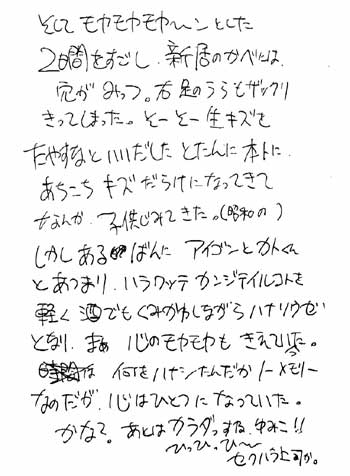 そして モヤモヤモヤ〜ンとした
2日間をすごし、新居のかべには、
穴が みっつ。右足のうらもザックリ
きってしまった。とーとー生キズを
たやすなと いいだした とたんに 本トに、
あちこち キズだらけになってきて
なんか、子供じみてきた。(昭和の)
しかし ある ばんに アイゴンと カトくん
とあつまり、ハラワッテ カンジテイルコトを
軽く 酒でも くみかわしながら ハナソウゼ
となり、まぁ 心のモヤモヤも きえていた。
何をハナシたんだか ノーメモリー
なのだが、心はひとつに なっていた。
かな?。あとは カラダっすね、ゆみこ!!
ひっひっひ〜
セクハラ上司か。